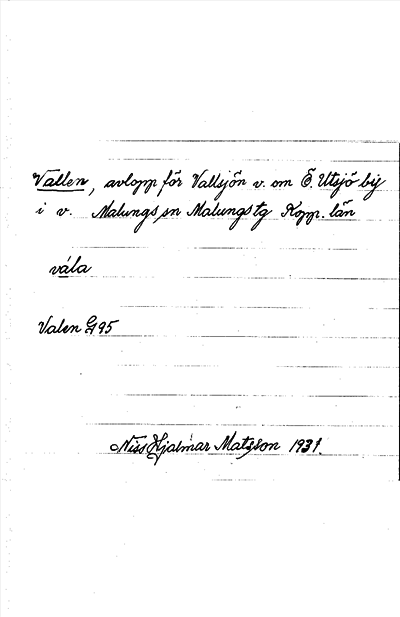 Vallen, avlopp för Vallsjön v. om Ö. Utsjö by
i v. Malungs sn Malungs tg Kopp. län
våla
Valen G95
Niss Hjalmar Matsson 1931.